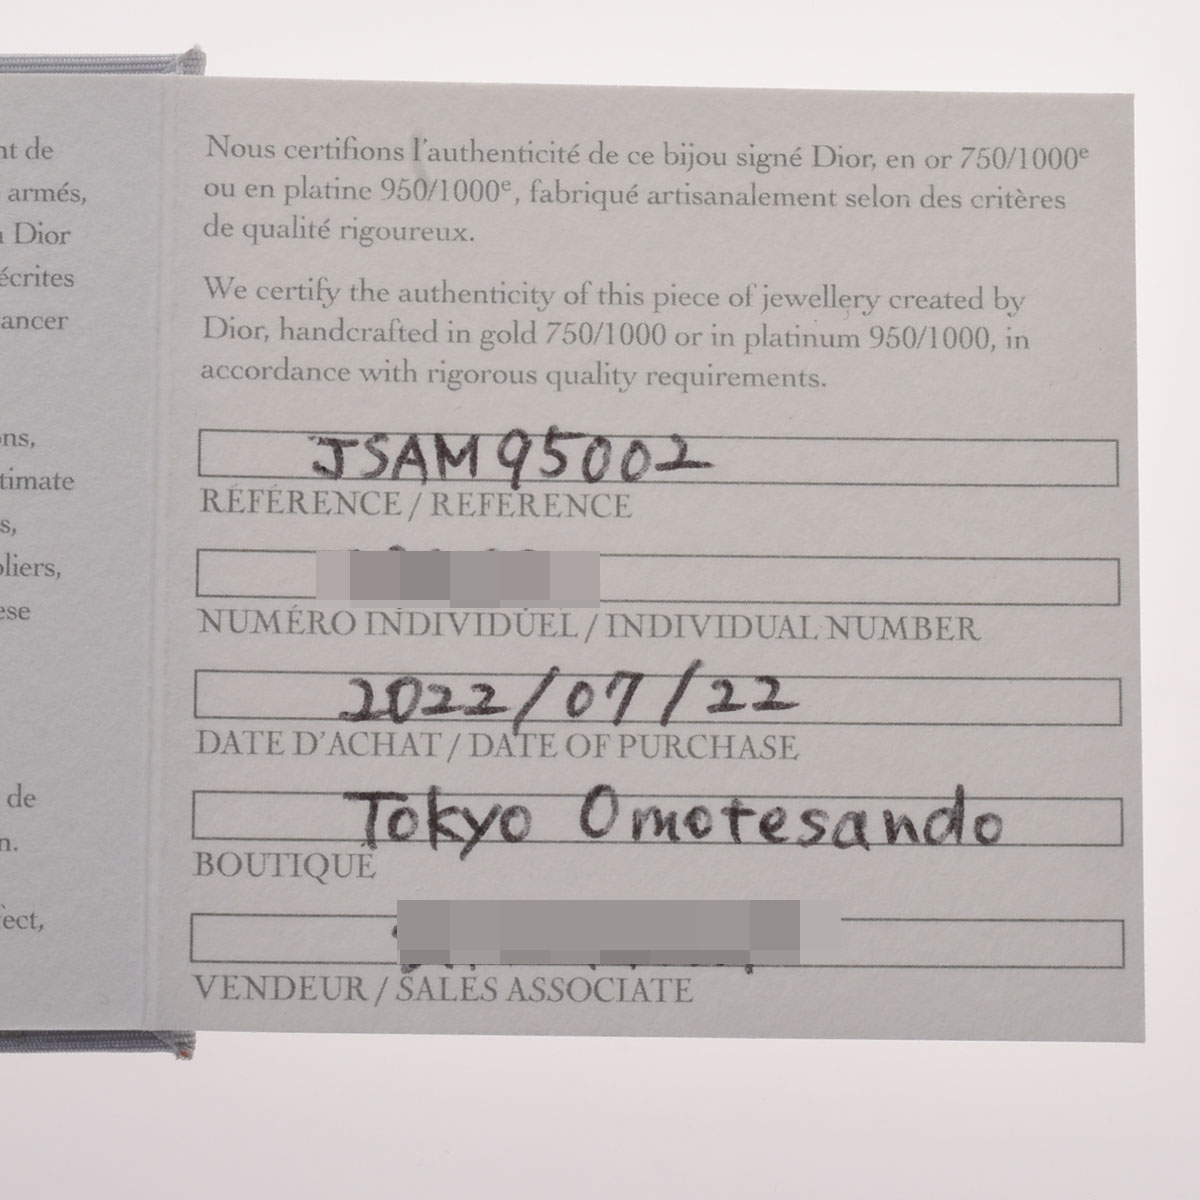 nt de
armés,
Dior
écrites
ancer
ns,
timate
s,
pliers,
ese
de
n.
ect,
Nous certifions l'authenticité de ce bijou signé Dior, en or 750/1000e
ou en platine 950/1000e, fabriqué artisanalement selon des critères
de qualité rigoureux.
We certify the authenticity of this piece of jewellery created by
Dior, handcrafted in gold 750/1000 or in platinum 950/1000, in
accordance with rigorous quality requirements.
JSAM95002
RÉFÉRENCE / REFERENCE
NUMÉRO INDIVIDUEL / INDIVIDUAL NUMBER
2022/07/22
DATE D'ACHAT / DATE OF PURCHASE
Tokyo Omotesando
BOUTIQUE
VENDEUR / SALES ASSOCIATE